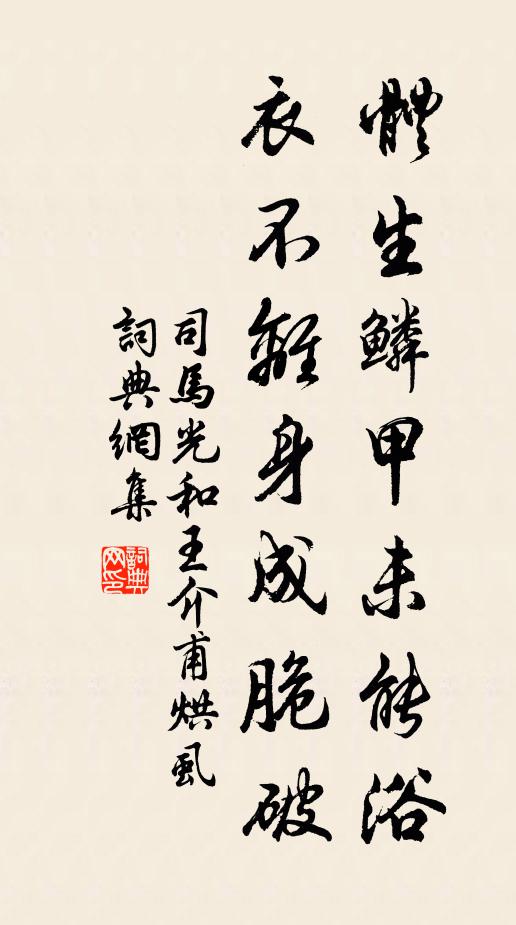 體生鱗甲未能浴
衣不離身成脆破
司馬光和王介甫烘虱
詞典網集
詞典網印